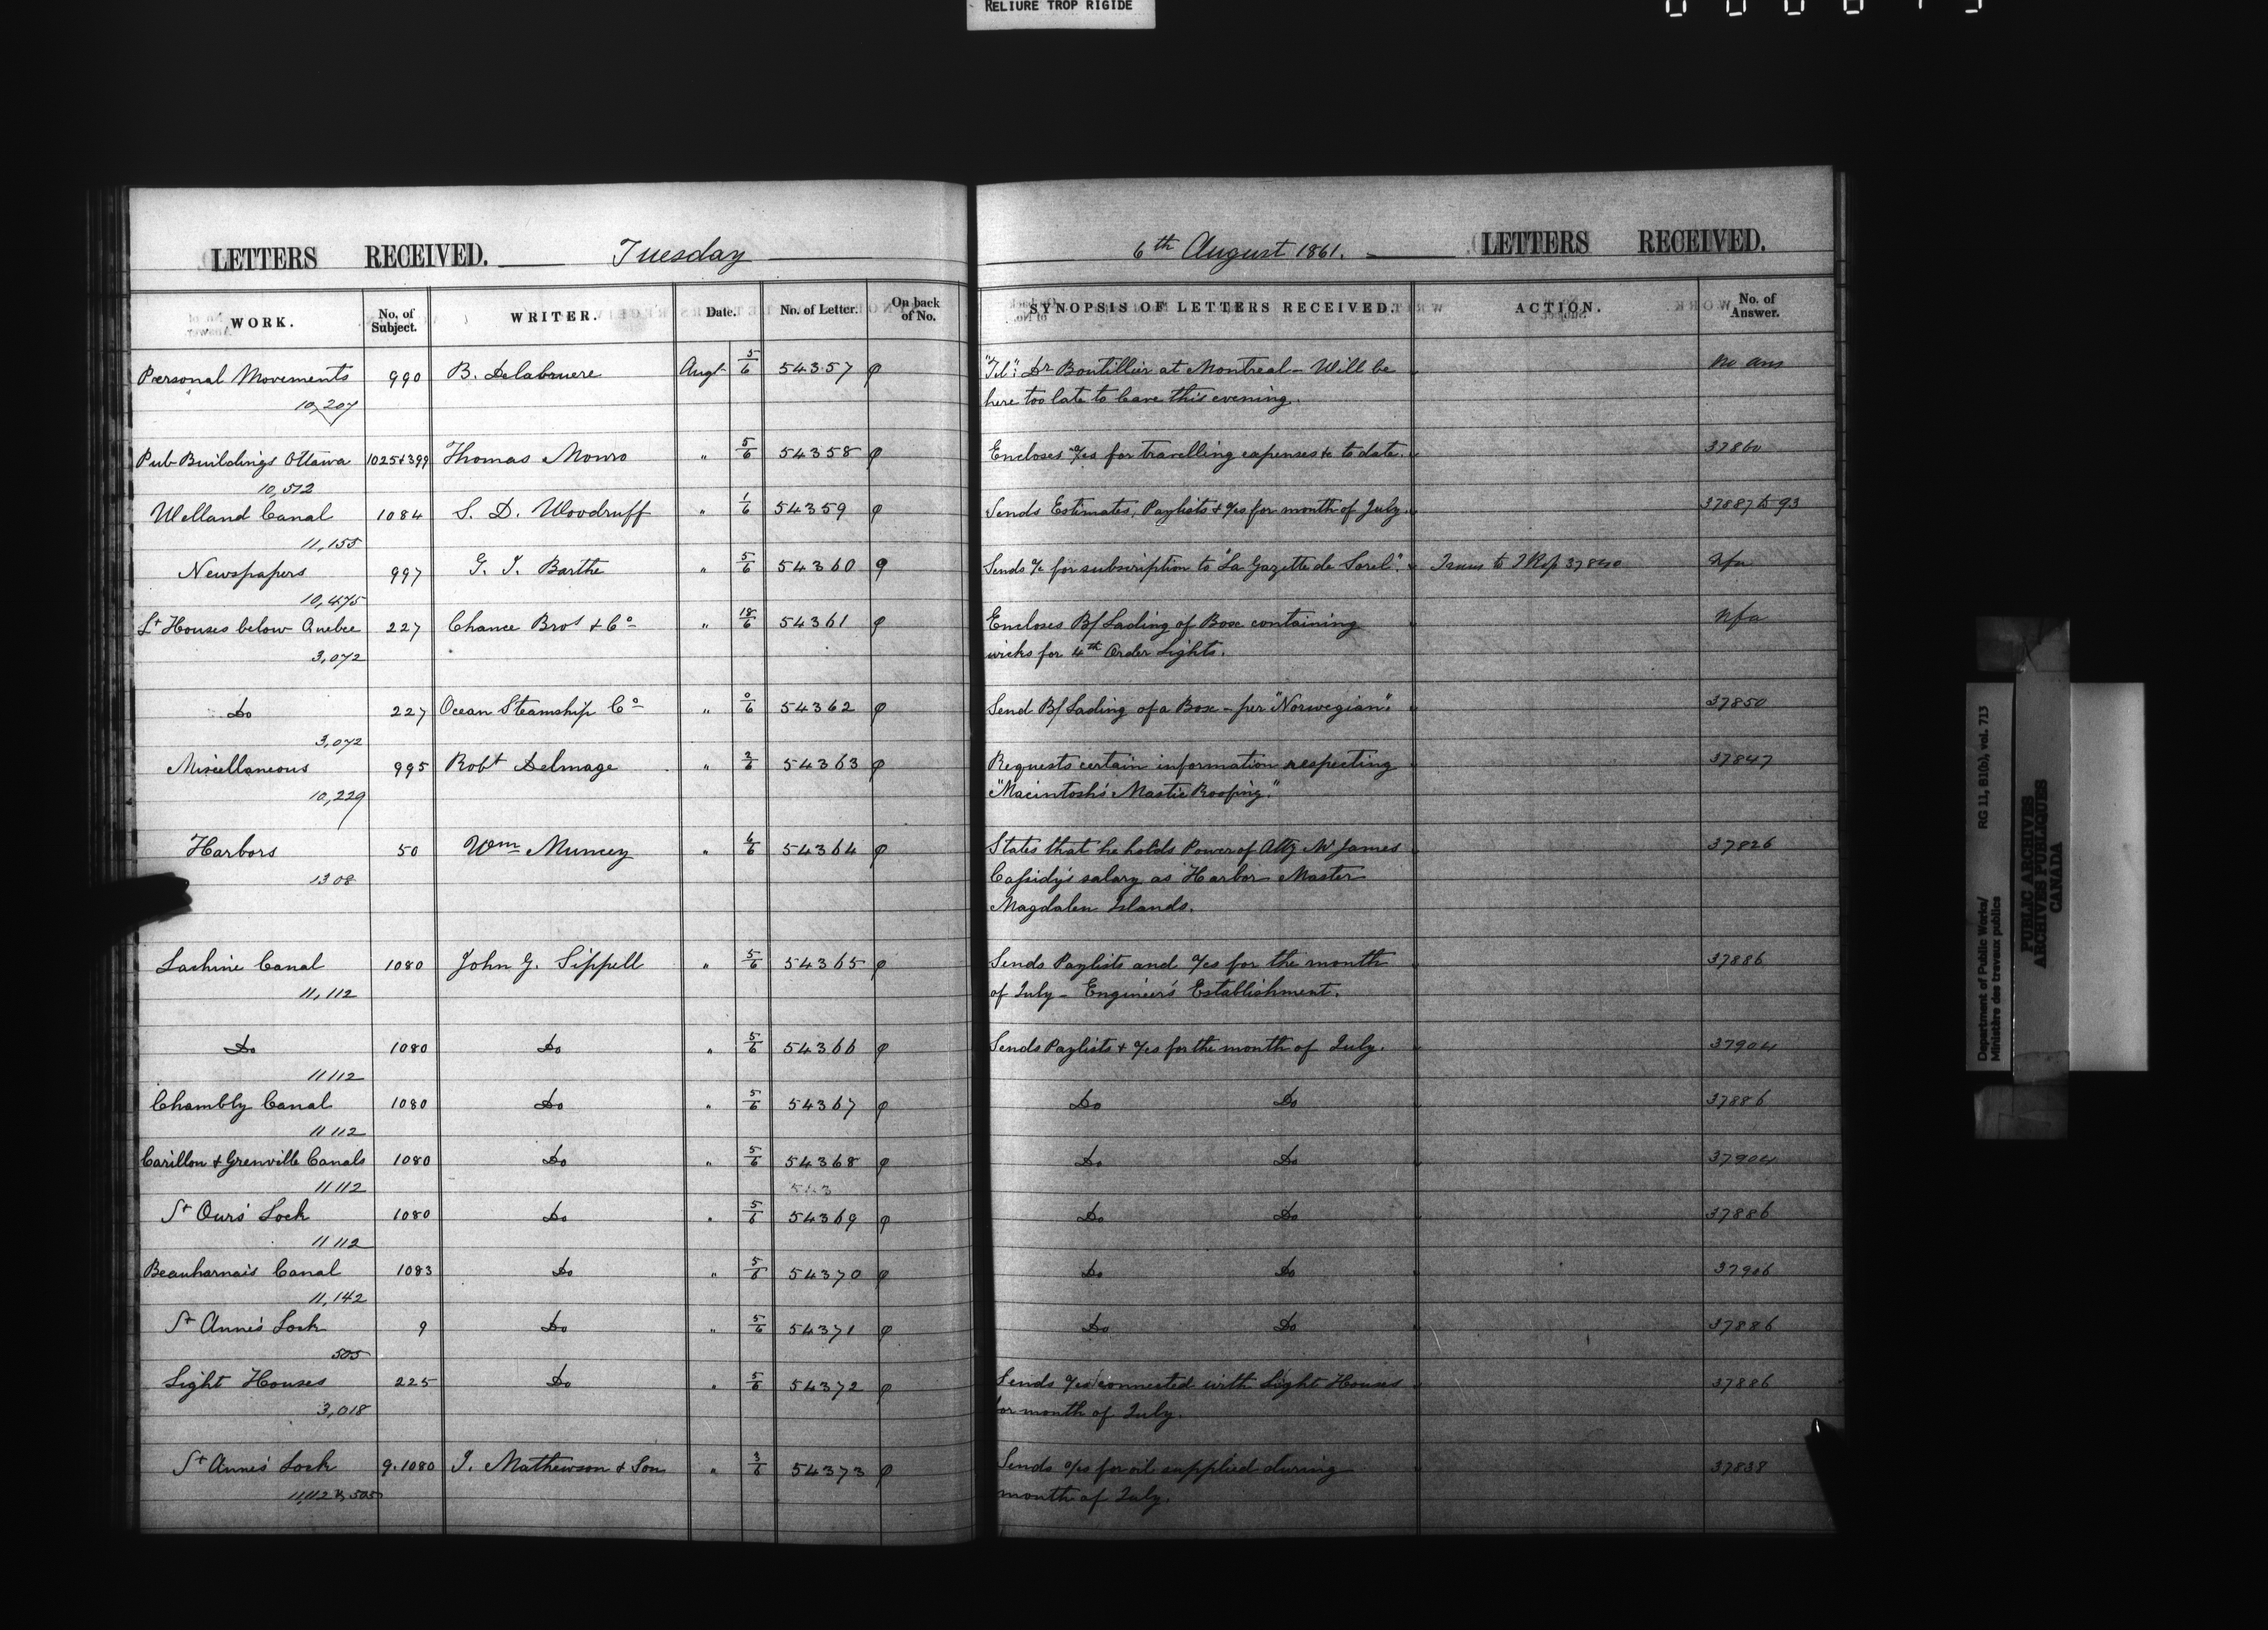 RELIURE TROP RIGIDE
LETTERS RECEIVED. Tuesday
WORK. No. of Subject. WRITER. Date. No. of Letter. On back of No.
Personal Movements 990 B. Delabruere Augt 5/6 54357 φ
10,207
Pub Buildings Ottawa 1025+399 Thomas Monro " 5/6 54358 φ
10,512
Welland Canal 1084 S. D. Woodruff " 1/6 54359 φ
11,155
Newspapers 997 G. I. Barthe " 5/6 54360 φ
10,475
Lt Houses below Quebec 227 Chance Bros & Co " 18/6 54361 φ
3,072
Do 227 Ocean Steamship Co " 0/6 54362 φ
3,072
Miscellaneous 995 Robt Delmage " 2/6 54363 φ
10,229
Harbors 50 Wm Muncey " 6/6 54364 φ
1308
Lachine Canal 1080 John G. Sippell " 5/6 54365 φ
11,112
Do 1080 Do " 5/6 54366 φ
11112
Chambly Canal 1080 Do " 5/6 54367 φ
11112
Carillon & Grenville Canals 1080 Do " 5/6 54368 φ
11112
St Ours' Lock 1080 Do " 5/6 54369 φ
11112
Beauharnais Canal 1083 Do " 5/6 54370 φ
11,142
St Anne's Lock 9 Do " 5/6 54371 φ
505
Light Houses 225 Do " 5/6 54372 φ
3,018
St Anne's Lock 9.1080 J. Mathewson & Son " 3/6 54373 φ
11,112 & 505
6th August 1861. LETTERS RECEIVED.
SYNOPSIS OF LETTERS RECEIVED. ACTION. No. of Answer.
"Tel": Dr Boutillier at Montreal – Will be No ans
here too late to leave this evening.
Encloses a/cs for travelling expenses &c to date. 37860
Sends Estimates, Paylists & a/cs for month of July. 37887 to 93
Sends a/c for subscription to "La Gazette de Sorel". Trans to 37840 Nfa
Encloses B/ Lading of Box containing Nfa
wicks for 4th Order Lights.
Send B/ Lading of a Box – per "Norwegian". 37850
Requests certain information respecting 37847
"Macintosh's Mastic Roofing."
States that he holds Power of Atty Mr James 37826
Cassidy's salary as Harbor Master
Magdalen Islands.
Sends Paylists and a/cs for the month 37886
of July – Engineer's Establishment.
Sends Paylists & a/cs for the month of July. 37904
Do Do 37886
Do Do 37904
Do Do 37886
Do Do 37906
Do Do 37886
Sends a/cs connected with Light Houses 37886
for month of July.
Sends a/cs for oil supplied during 37838
month of July.
Department of Public Works/ RG 11, B1(b), vol. 713
Ministère des travaux publics
PUBLIC ARCHIVES
ARCHIVES PUBLIQUES
CANADA